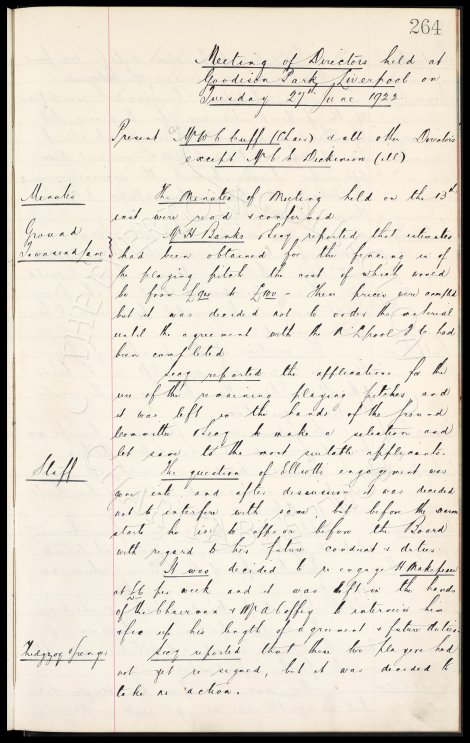 264
Meeting of Directors held at
Goodison Park, Liverpool on
Tuesday 27th June 1922.
Present Mr W C Cuff (Chair) & all other Directors
except Mr (ill)
Minutes
The Minutes of Meeting held on the 13th
inst were read & confirmed
Ground
Townsend Lane
Mr H Banks & Secy reported that estimates
had been obtained for the fencing in of
the playing pitch the cost of which would
be from to - These prices were
but it was decided not to order the material
until the agreement with the had
been completed
Secy reported the applications for the
use of the remaining playing pitches and
it was left in the hands of the Ground
Committee & Secy to make a selection and
let same to the most suitable applicants.
Staff
The question of Elliotts engagement was
gone into and after discussion it was decided
not to interfere with same, but before the season
starts he is to appear before the Board
with regard to his future conduct & duties.
It was decided to re engage H Makepeace
at £6 per week and it was left in the hands
of the Chairman & Mr A Coffey to interview him
& fix up his length of agreement & future duties.
Secy reported that these two players had
not yet re-signed, but it was decided to
take no action.